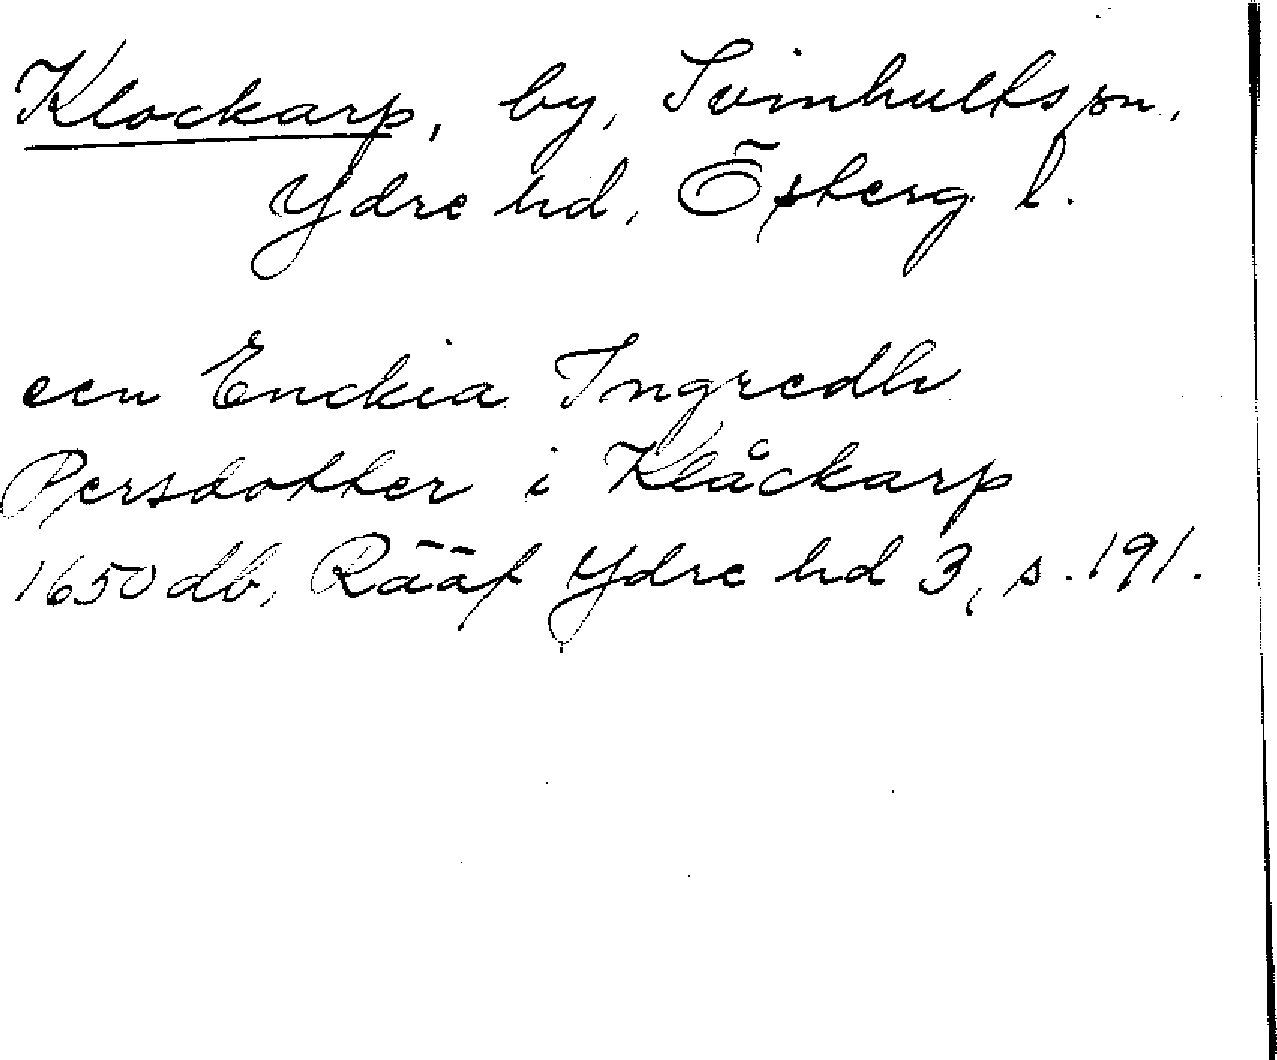 Klockarp, by, Svinhults sn,
Ydre hd, Östergl.
een Enckia Ingredh
Persdotter i Klåckarp
1650 db, Rääf Ydre hd 3, s. 191.